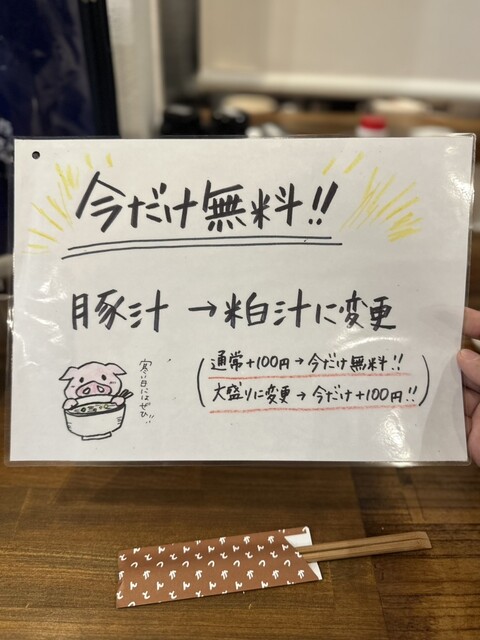 今だけ無料!!
豚汁→粕汁に変更
(通常+100円→今だけ無料!!
大盛りに変更→今だけ+100円!!)
寒い日にはぜひ!!